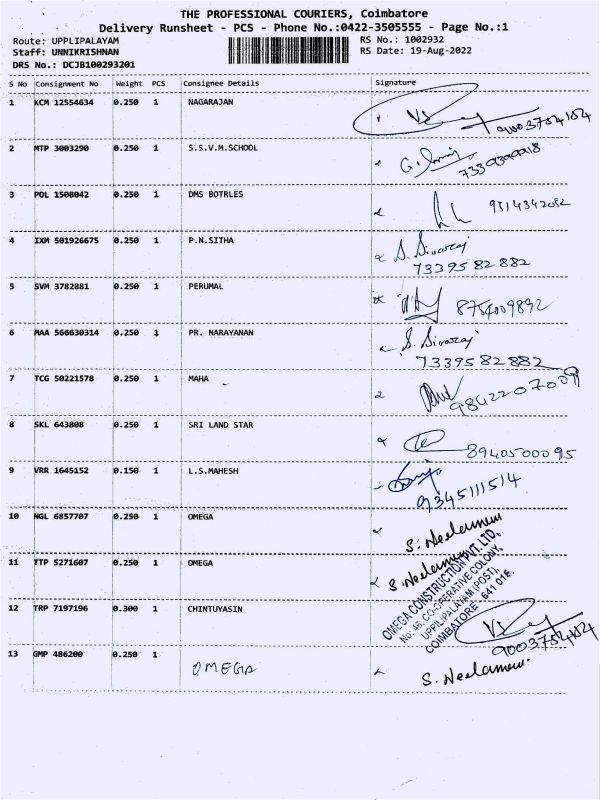 THE PROFESSIONAL COURIERS, Coimbatore
Delivery Runsheet - PCS - Phone No.:0422-3505555 - Page No.:1
Route: UPPLIPALAYAM RS No.: 1002932
Staff: UNNIKRISHNAN RS Date: 19-Aug-2022
DRS No.: DCJB100293201
S No Consignment No Weight PCS Consignee Details Signature
1 KCM 12554634 0.250 1 NAGARAJAN
9003754184
2 MTP 3003290 0.250 1 S.S.V.M.SCHOOL
3 POL 1508042 0.250 1 DMS BOTRLES
4 IXM 501926675 0.250 1 P.N.SITHA S. Sivaraj
7339582882
5 SVM 3782881 0.250 1 PERUMAL
8754009892
6 MAA 566630314 0.250 1 PR. NARAYANAN S. Sivaraj
7339582882
7 TCG 50221578 0.250 1 MAHA
9842207009
8 SKL 643808 0.250 1 SRI LAND STAR
8940500095
9 VRR 1645152 0.150 1 L.S.MAHESH
9345111514
10 NGL 6857707 0.250 1 OMEGA
11 TTP 5271607 0.250 1 OMEGA
OMEGA CONSTRUCTION PVT. LTD.
No:45, CO-OPERATIVE COLONY,
UPPILIPALAYAM (POST),
COIMBATORE - 641 015.
12 TRP 7197196 0.300 1 CHINTUYASIN
13 GMP 486200 0.250 1 OMEGA